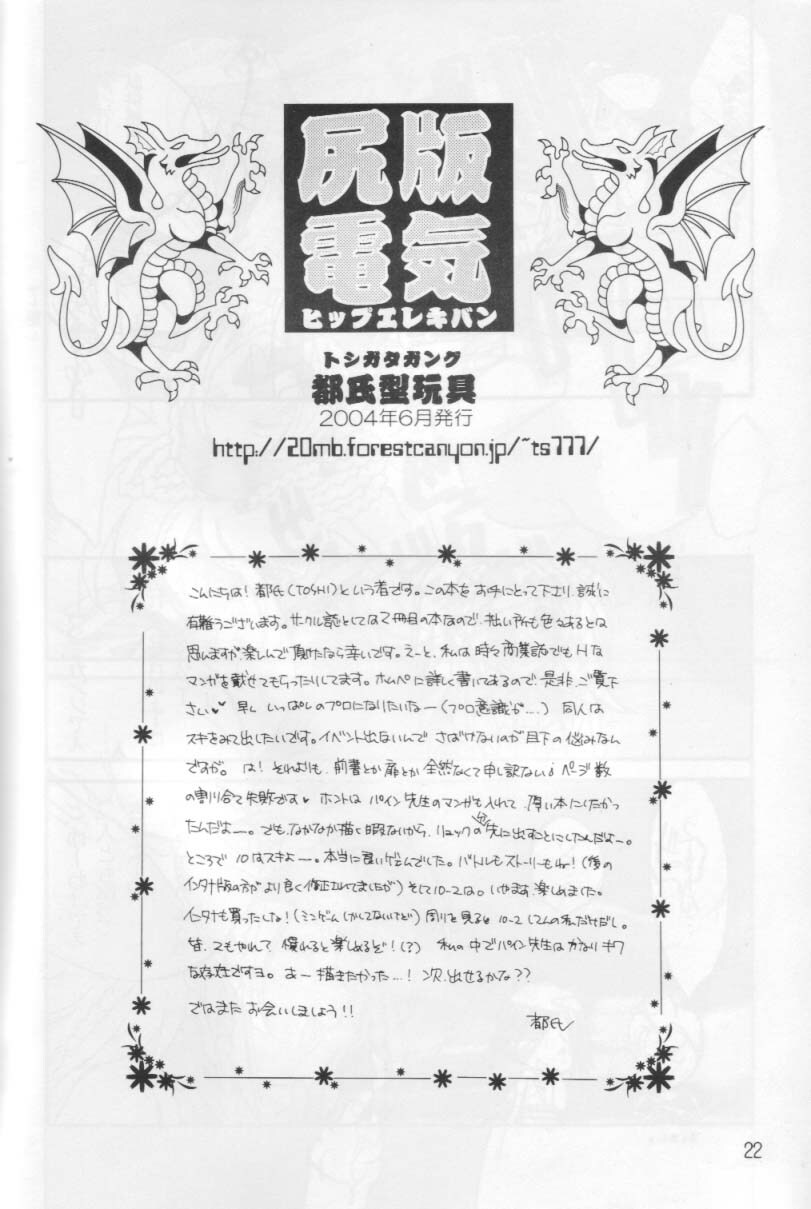 尻版
電気
ヒップエレキバン
トシガタガング
都氏型玩具
2004年6月発行
http://20mb.forestcanyon.jp/~ts777/
こんにちは！都氏（TOSHI）という者です。この本をお手にとって下さり、誠に
有難うございます。サークル誌としては2冊目の本なので、拙い所も色々あるとは
思いますが、楽しんで頂けたなら幸いです。えーと、私は時々商業誌でもHな
マンガを載せてもらったりしてます。ホムペに詳しく書いてあるので、是非、ご覧下
さい♥♥ 早く いっぱしのプロになりたいなー（プロ意識が…。） 同人は
スキをみて出したいです。イベント出ないんで さばけないのが目下の悩みなん
ですが。 は！それよりも、前書とか扉とか全然なくて申し訳ない ページ数
の割り合て失敗です♥ ホントは パイン先生のマンガも入れて 厚い本にしたかっ
たんだよー。でも、なかなか描く暇ないから、リュックの 先に出すことにしたんだよー。
ところで 10はスキよー。本当に良いゲームでした。バトルもストーリーもね！（後の
インタナ版の方が より良く修正されてましたが）そして10-2は。いやはや、楽しめました。
インタナも買ったしな！（ミニゲームしかしてないけど）周りを見ると 10-2 してんの私だけだし。
皆、 もやれって 慣れると楽しめるぞ！(?) 私の中でパイン先生は かなり キワ
な存在ですヨ。 あー 描きたかった…！ 次、出せるかな？？
ではまた お会いしましょう！！
都氏
22